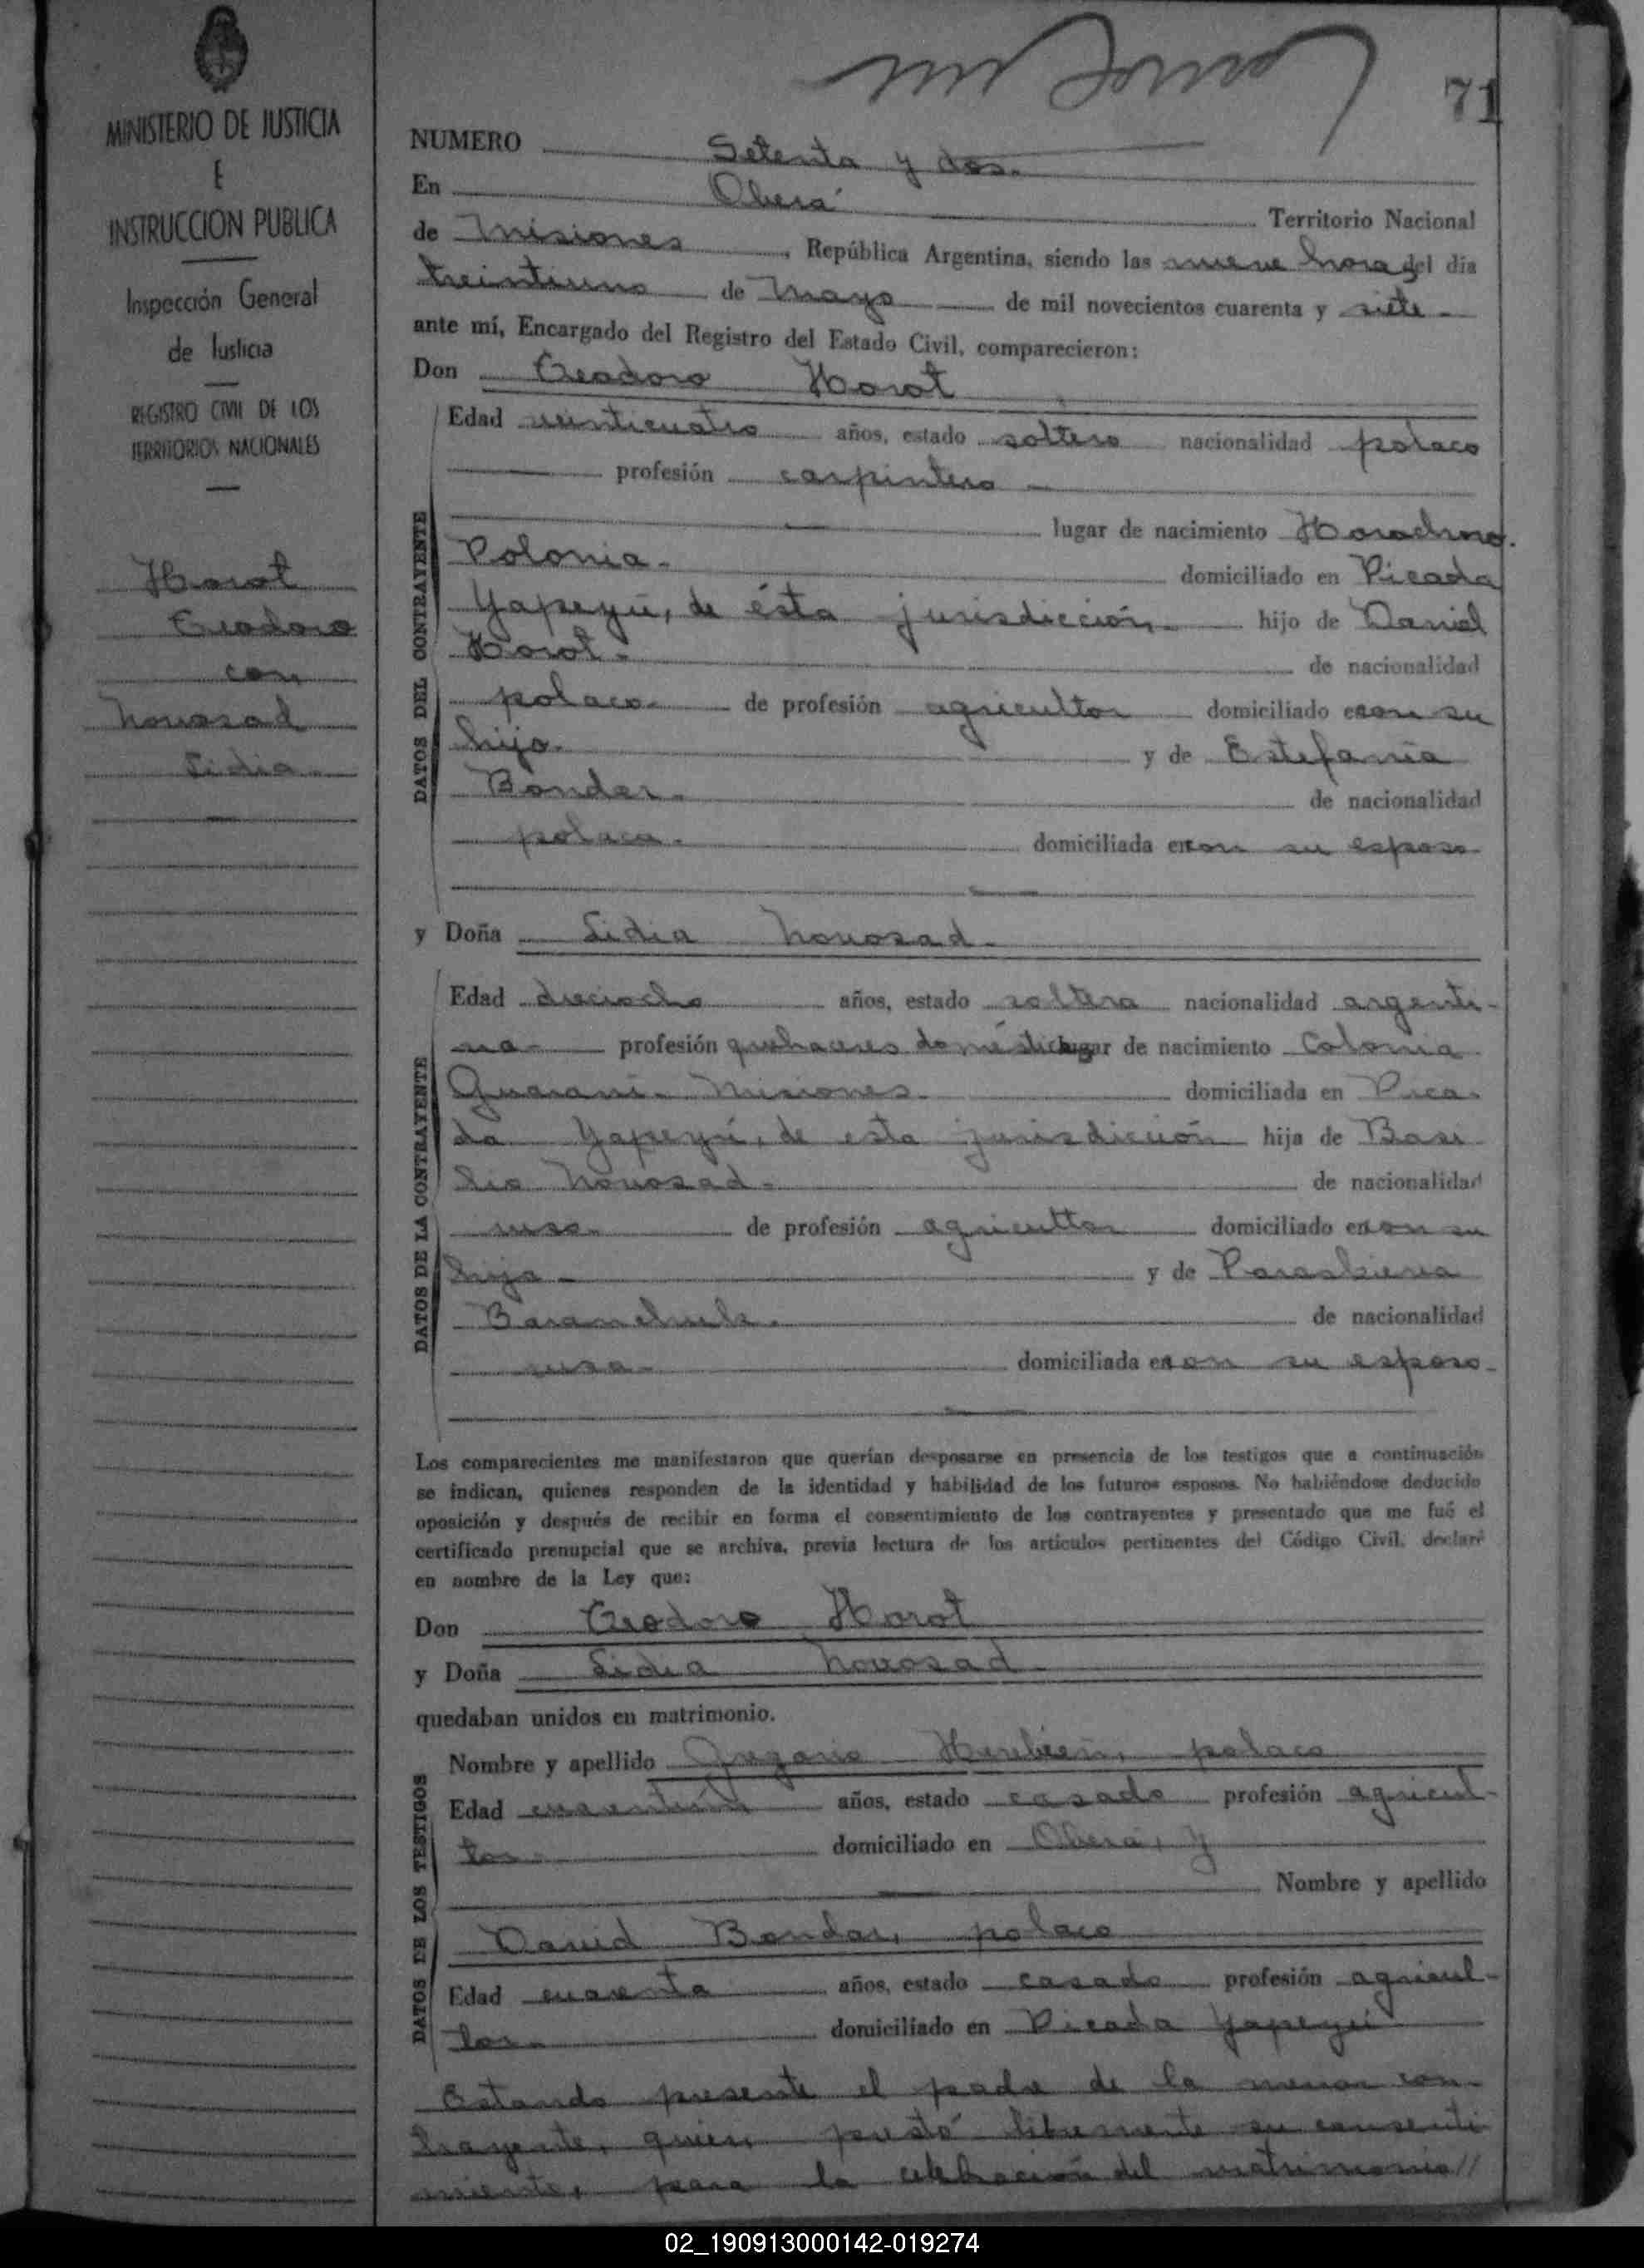 71
MINISTERIO DE JUSTICIA
E
INSTRUCCION PUBLICA
Inspección General
de Justicia
REGISTRO CIVIL DE LOS
TERRITORIOS NACIONALES
Horot
Teodoro
con
Novosad
Lidia
NUMERO Setenta y dos.
En Oberá Territorio Nacional
de Misiones, República Argentina, siendo las nueve horas del día
treintiuno de Mayo de mil novecientos cuarenta y siete
ante mí, Encargado del Registro del Estado Civil, comparecieron:
Don Teodoro Horot
DATOS DEL CONTRAYENTE
Edad veinticuatro años, estado soltero nacionalidad polaco
profesión carpintero
lugar de nacimiento
Polonia. domiciliado en Picada
Yapeyú, de ésta jurisdicción hijo de Daniel
Horot. de nacionalidad
polaco. de profesión agricultor domiciliado con su
hijo. y de Estefania
Bonder. de nacionalidad
polaca. domiciliada con su esposo
y Doña Lidia Novosad.
DATOS DE LA CONTRAYENTE
Edad dieciocho años, estado soltera nacionalidad argenti-
na- profesión quehaceres domésticos lugar de nacimiento Colonia
Guaraní. Misiones. domiciliada en Pica-
da Yapeyú, de esta jurisdicción hija de Basi
lio Novosad. de nacionalidad
ruso. de profesión agricultor domiciliado con su
hija y de
de nacionalidad
rusa. domiciliada con su esposo-
Los comparecientes me manifestaron que querían desposarse en presencia de los testigos que a continuación
se indican, quienes responden de la identidad y habilidad de los futuros esposos. No habiéndose deducido
oposición y después de recibir en forma el consentimiento de los contrayentes y presentado que me fué el
certificado prenupcial que se archiva, previa lectura de los artículos pertinentes del Código Civil, declaré
en nombre de la Ley que:
Don Teodoro Horot
y Doña Lidia Novosad
quedaban unidos en matrimonio.
DATOS DE LOS TESTIGOS
Nombre y apellido Gregorio polaco
Edad años, estado casado profesión agricul-
tor. domiciliado en Oberá, y
Nombre y apellido
David Bondar, polaco
Edad cuarenta años, estado casado profesión agricul-
tor. domiciliado en Picada Yapeyú
Estando presente el padre de la menor con-
trayente, quien prestó libremente su consenti
miento, para la celebración del matrimonio//
02_190913000142-019274